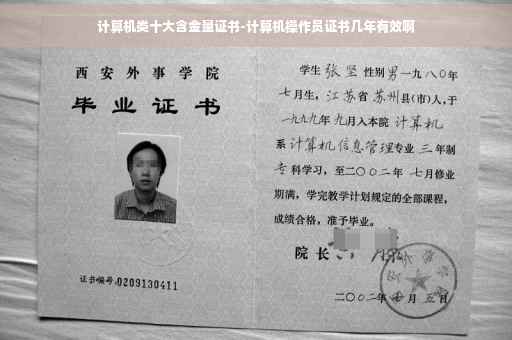 计算机类十大含金量证书-计算机操作员证书几年有效啊
西安外事学院
毕业证书
证书编号:0209130411
学生张坚性别男一九八〇年
七月生，江苏省苏州县(市)人,于
一九九九年九月入本院计算机
系计算机信息管理专业三年制
专科学习，至二〇〇二年七月修业
期满，学完教学计划规定的全部课程，
成绩合格，准予毕业。
院长
二〇〇二年七月五日